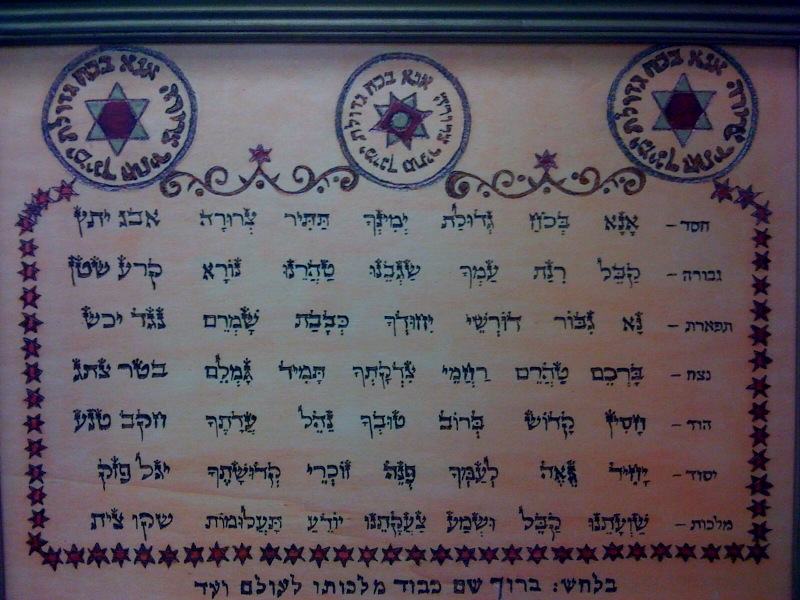 אנא בכח גדולת ימינך תתיר צרורה
אנא בכח גדולת ימינך תתיר צרורה
אנא בכח גדולת ימינך תתיר צרורה
חסד – אָנָּא בְּכֹחַ גְּדוּלַת יְמִינְךָ תַּתִּיר צְרוּרָה אבג יתץ
גבורה – קַבֵּל רִנַּת עַמְּךָ שַׂגְּבֵנוּ טַהֲרֵנוּ נוֹרָא קרע שטן
תפארת – נָא גִּבּוֹר דּוֹרְשֵׁי יִחוּדְךָ כְּבָבַת שָׁמְרֵם נגד יכש
נצח – בָּרְכֵם טַהֲרֵם רַחֲמֵי צִדְקָתְךָ תָּמִיד גָּמְלֵם בטר צתג
הוד – חֲסִין קָדוֹשׁ בְּרוֹב טוּבְךָ נַהֵל עֲדָתֶךָ חקב טנע
יסוד – יָחִיד גֵּאֶה לְעַמְּךָ פְּנֵה זוֹכְרֵי קְדוּשָׁתֶךָ יגל פזק
מלכות – שַׁוְעָתֵנוּ קַבֵּל וּשְׁמַע צַעֲקָתֵנוּ יוֹדֵעַ תַּעֲלוּמוֹת שקו צית
בלחש: ברוך שם כבוד מלכותו לעולם ועד